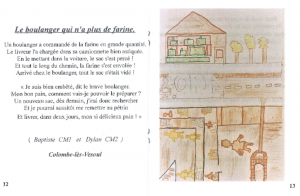 Le boulanger qui n'a plus de farine.
Un boulanger a commandé de la farine en grande quantité.
Le livreur l'a chargée dans sa camionnette bien antique.
En le mettant dans la voiture, le sac s'est percé !
Et tout le long du chemin, la farine s'est envolée !
Arrivé chez le boulanger, tout le sac s'était vidé !
« Je suis bien embêté, dit le brave boulanger.
Mon bon pain, comment vais-je pouvoir le préparer ?
Un nouveau sac, dès demain, j'irai donc rechercher
Et je pourrai aussitôt me remettre au pétrin
Et livrer, dans deux jours, mon si délicieux pain ! »
( Baptiste CM1 et Dylan CM2 )
Colombe-lès-Vesoul
12
13